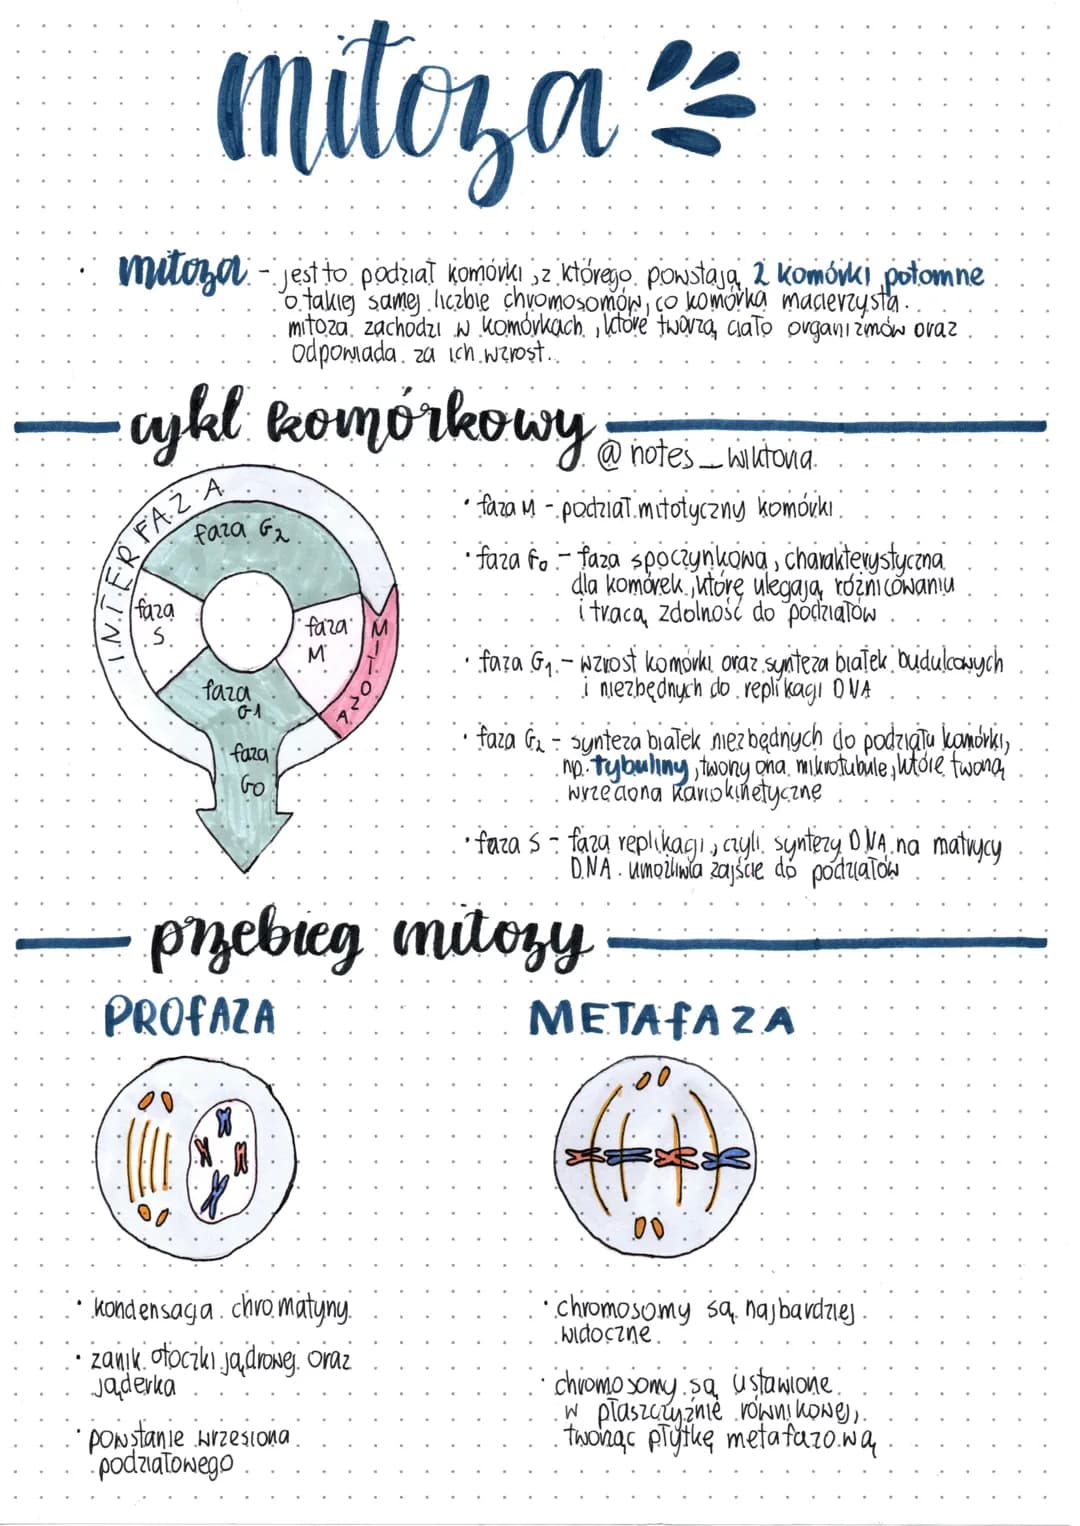 mitoza
• mitoza - jest to podział komórki, z którego powstają 2 komórki potomne
o takiej samej liczbie chromosomów, co komórka macierzysta.
mitoza zachodzi w komórkach, które tworzą ciało organizmów oraz
odpowiada za ich wzrost.
cykl komórkowy
@notes_wiktoria
INTERFAZA
faza G2
faza
S
faza
M
MITOZA
faza
G1
faza
G0
• faza M - podział mitotyczny komórki
• faza G0 - faza spoczynkowa, charakterystyczna
dla komórek, które ulegają różnicowaniu
i tracą zdolność do podziałów
• faza G1 - wzrost komórki oraz synteza białek budulcowych
i niezbędnych do replikacji DNA
• faza G2 - synteza białek niezbędnych do podziału komórki,
np. tybuliny, tworzy ona mikrotubule, które tworzą
wrzeciona kariokinetyczne
• faza S - faza replikacji, czyli syntezy DNA na matrycy
DNA. umożliwia zajście do podziałów
przebieg mitozy
PROFAZA
• kondensacja chromatyny
• zanik otoczki jądrowej oraz
jąderka
• powstanie wrzesiona
podziałowego
METAFAZA
• chromosomy są najbardziej
widoczne
• chromosomy są ustawione
w płaszczyźnie równikowej,
tworząc płytkę metafazową